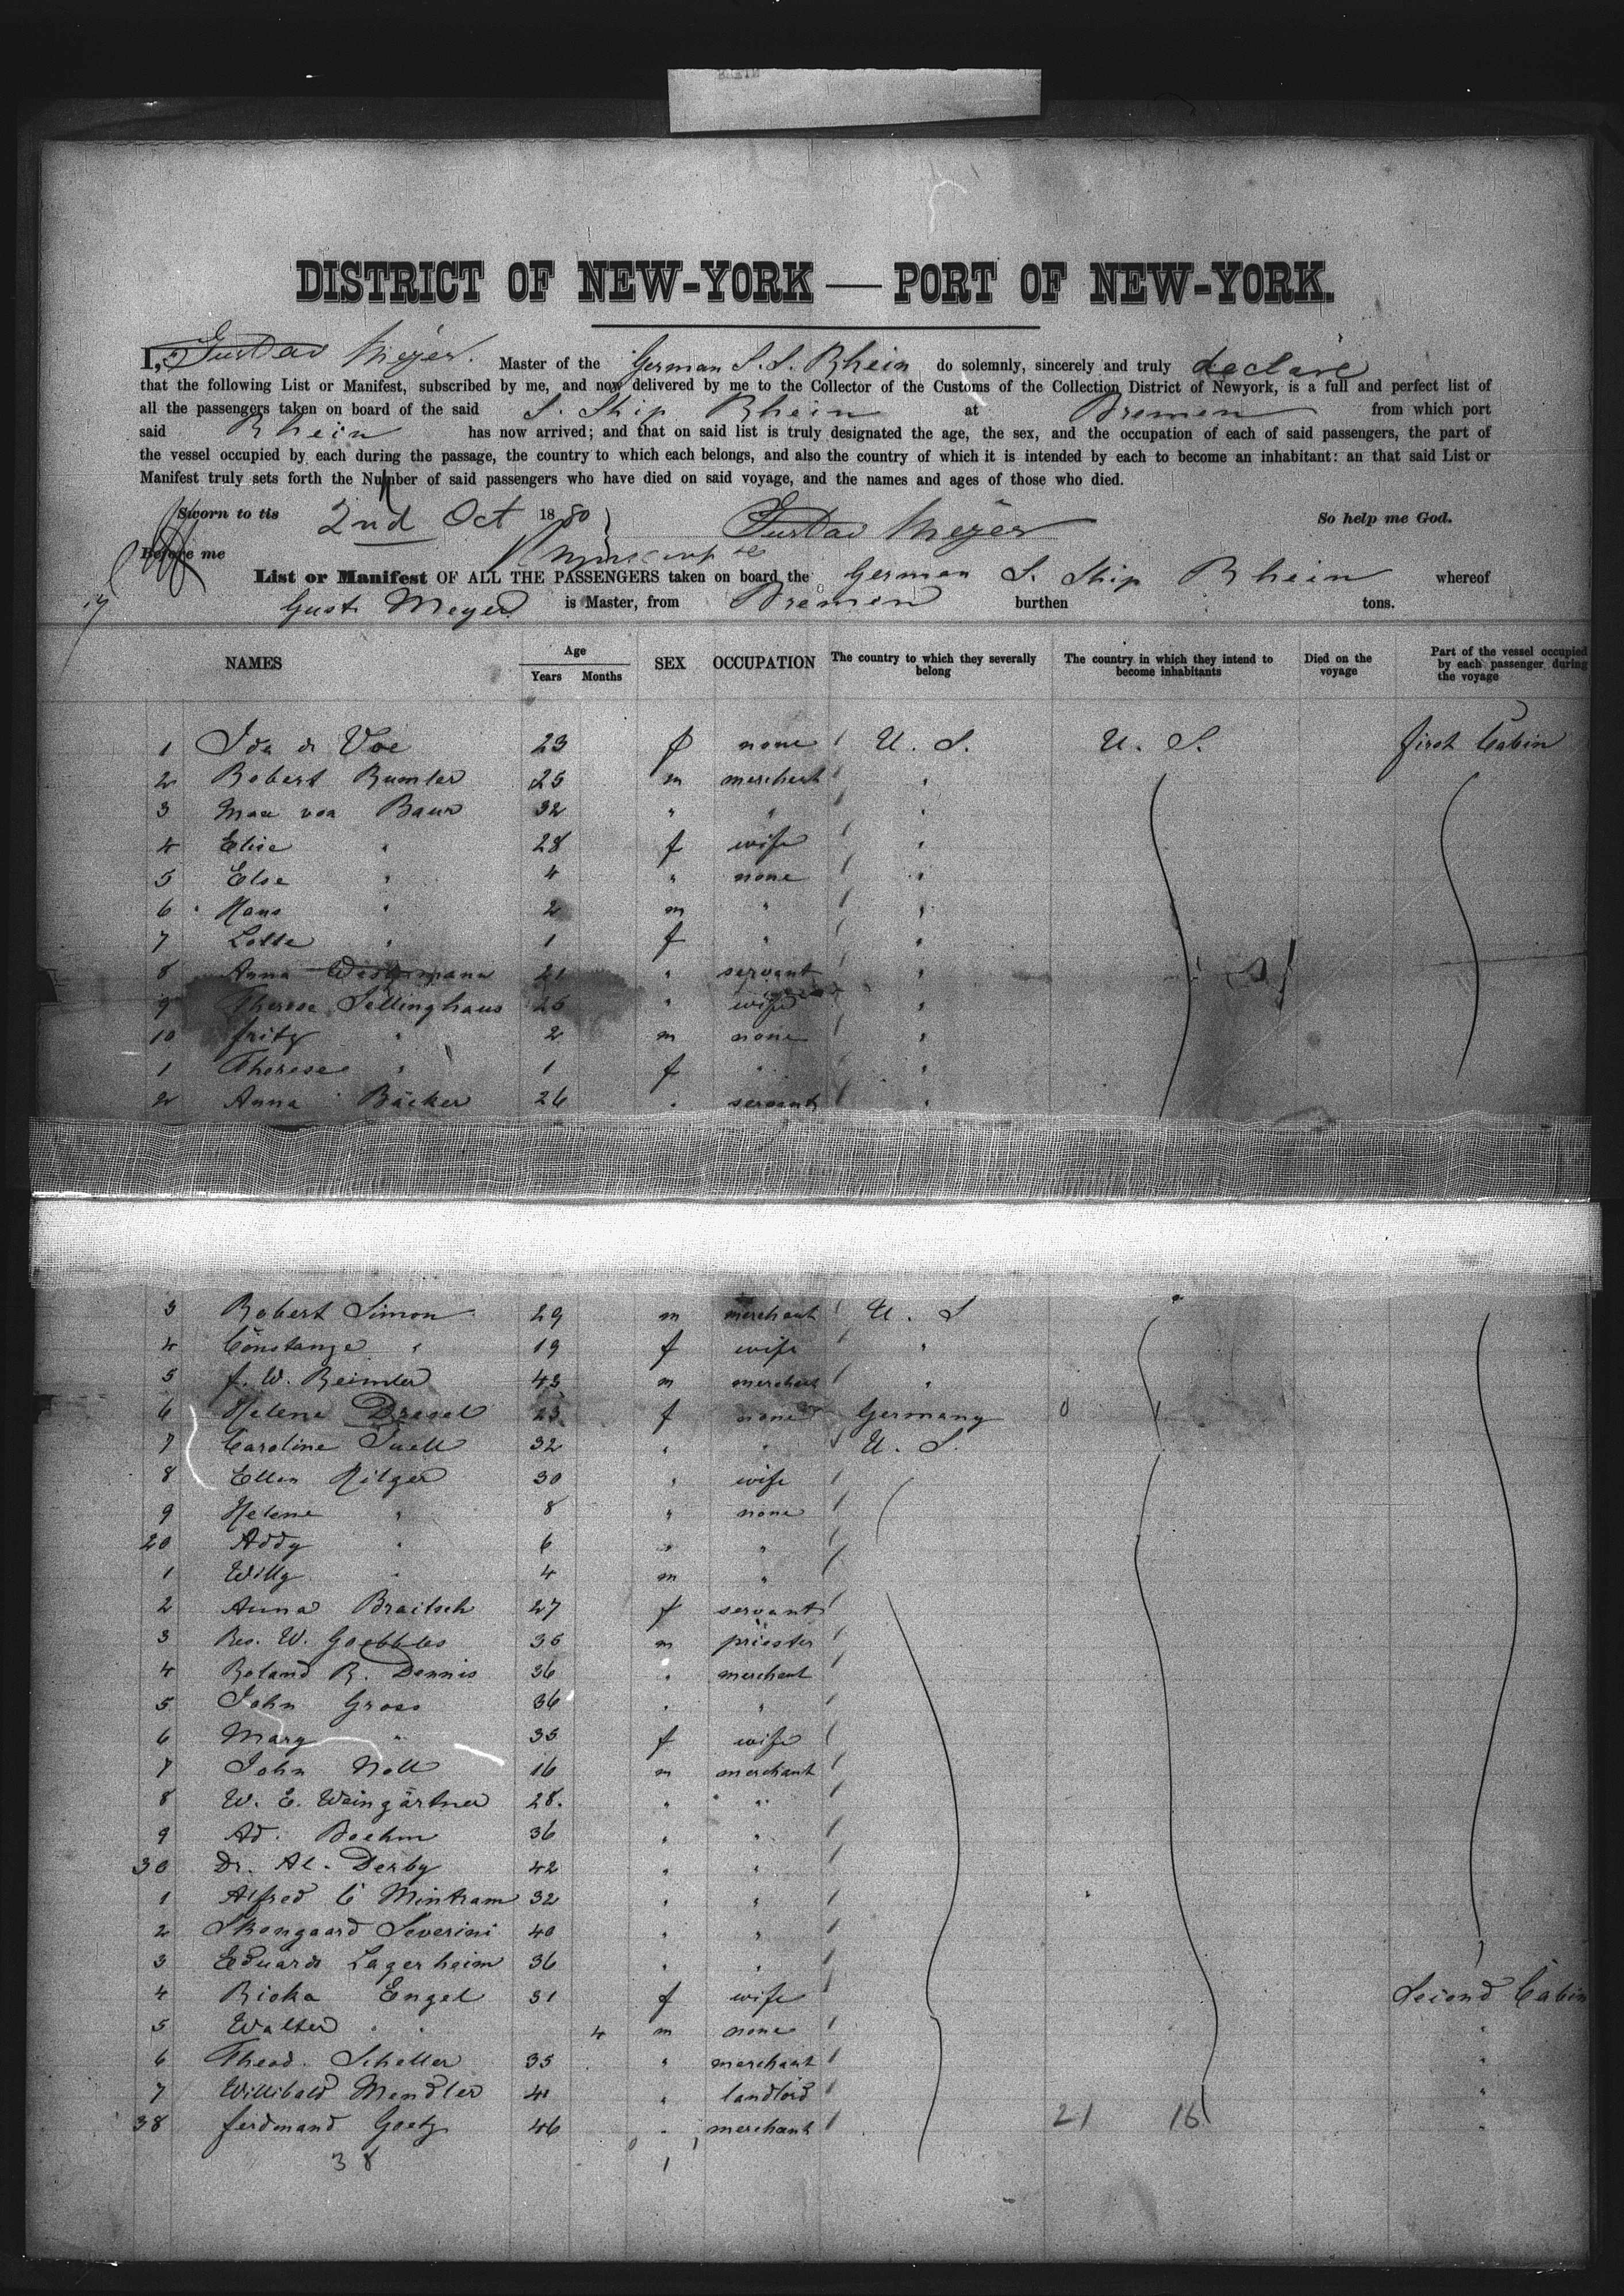 DISTRICT OF NEW-YORK — PORT OF NEW-YORK.
I, Gustav Meyer. Master of the German S. S. Rhein do solemnly, sincerely and truly declare
that the following List or Manifest, subscribed by me, and now delivered by me to the Collector of the Customs of the Collection District of Newyork, is a full and perfect list of
all the passengers taken on board of the said S. Ship Rhein at Bremen from which port
said Rhein has now arrived; and that on said list is truly designated the age, the sex, and the occupation of each of said passengers, the part of
the vessel occupied by each during the passage, the country to which each belongs, and also the country of which it is intended by each to become an inhabitant: an that said List or
Manifest truly sets forth the Number of said passengers who have died on said voyage, and the names and ages of those who died.
Sworn to tis 2nd Oct 1880 Gustav Meyer So help me God.
Before me
List or Manifest OF ALL THE PASSENGERS taken on board the German S. Ship Rhein whereof
Gust. Meyer is Master, from Bremen burthen tons.
NAMES Age Years Months SEX OCCUPATION The country to which they severally belong The country in which they intend to become inhabitants Died on the voyage Part of the vessel occupied by each passenger during the voyage
1 Ida de Voe 23 f none U. S. U. S. first Cabin
2 Robert Rumler 25 m merchant "
3 Max von Baur 32 " " "
4 Elise " 28 f wife "
5 Else " 4 " none "
6 Hans " 2 m " "
7 Lotte " 1 f " "
8 Anna Westermann 21 " servant "
9 Therese Sellinghaus 26 " wife "
10 Fritz " 2 m none "
1 Therese " 1 f " "
2 Anna Bäcker 26 " servant "
3 Robert Simon 29 m merchant U. S
4 Constanze " 19 f wife "
5 F. W. Reimler 43 m merchant "
6 Helene Dresel 23 f none Germany 0
7 Caroline Suell 32 " " U. S.
8 Ellen Rilger 30 " wife
9 Helene " 8 " none
20 Addy " 6 " "
1 Willy " 4 m "
2 Anna Braitsch 27 f servant
3 Rev. W. Goebbles 36 m priester
4 Roland R. Dennis 36 " merchant
5 John Gross 36 " "
6 Mary " 35 f wife
7 John Noll 16 m merchant
8 W. E. Weingärtner 28. " "
9 Ad. Boehm 36 " "
30 Dr. Al. Derby 42 " "
1 Alfred C Mintram 32 " "
2 Skongaard Severini 40 " "
3 Eduard Lagerheim 36 " "
4 Ricka Engel 31 f wife Second Cabin
5 Walter " 4 m none "
6 Theod. Scheller 35 " merchant "
7 Willibald Mendler 41 " landlord "
38 Ferdinand Goetz 46 " merchant 21 16 "
38 1